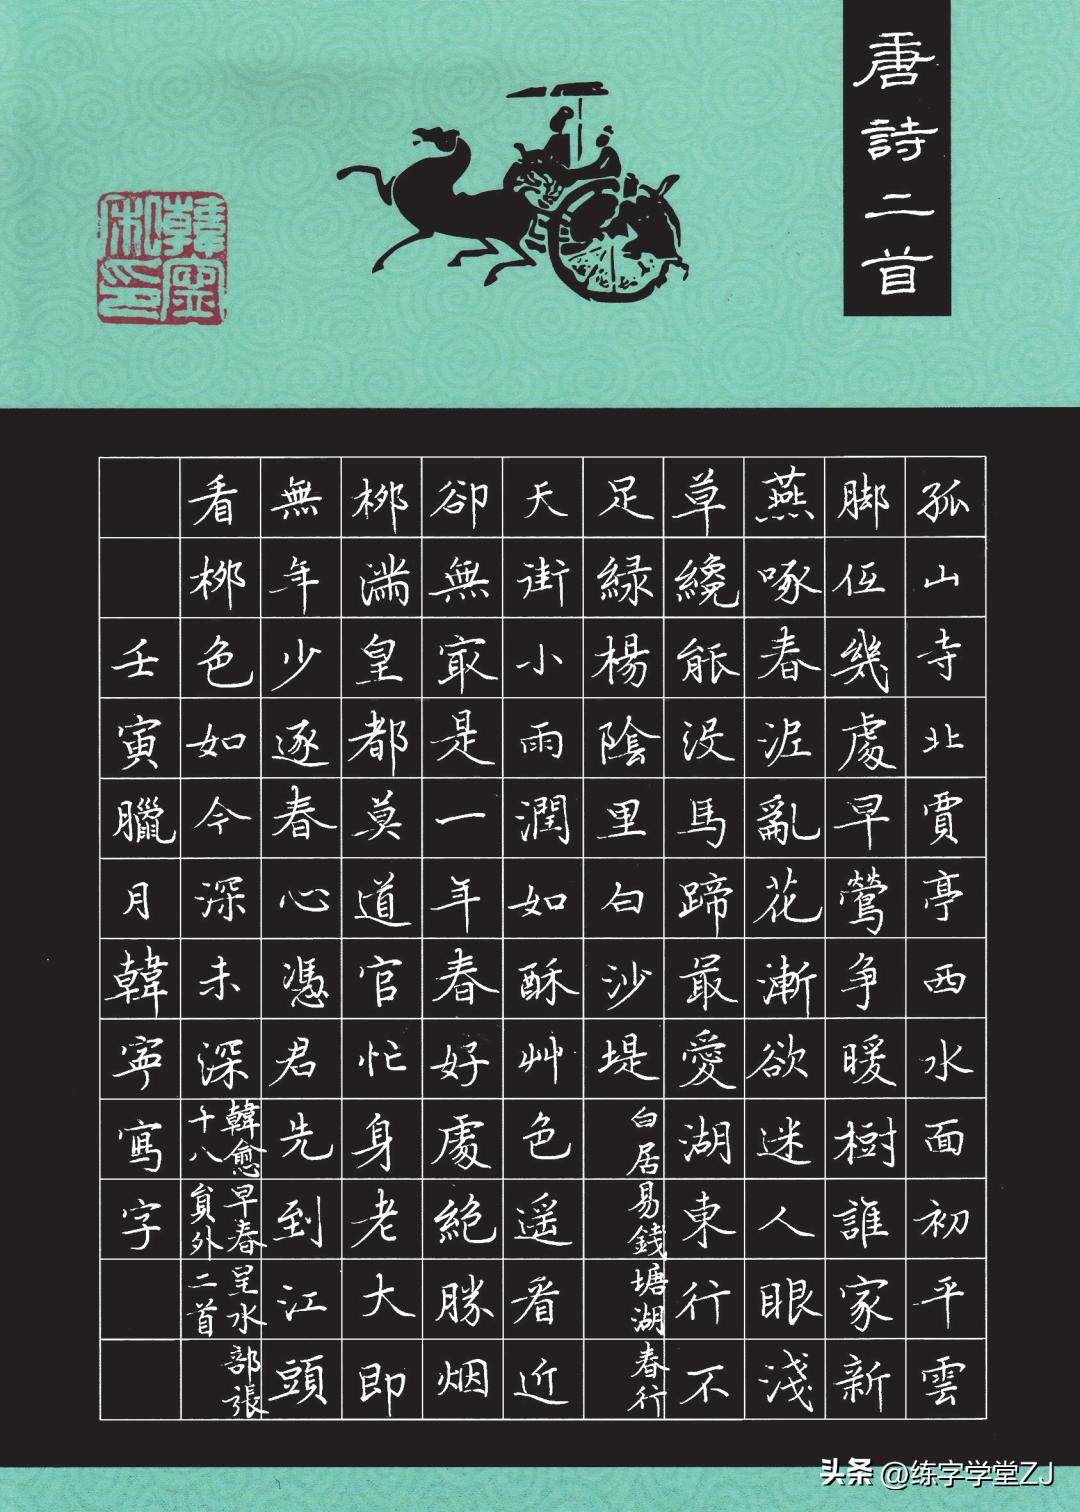 唐詩二首
韓寧私印
孤山寺北賈亭西水面初平雲
脚低幾處早鶯争暖樹誰家新
燕啄春泥亂花漸欲迷人眼淺
草纔能没馬蹄最愛湖東行不
足緑楊陰里白沙堤白居易錢塘湖春行
天街小雨潤如酥艸色遥看近
卻無最是一年春好處絶勝烟
柳滿皇都莫道官忙身老大即
無年少逐春心憑君先到江頭
看柳色如今深未深韓愈早春呈水部張
十八員外二首
壬寅臘月韓寧寫字
头条 @练字学堂ZJ